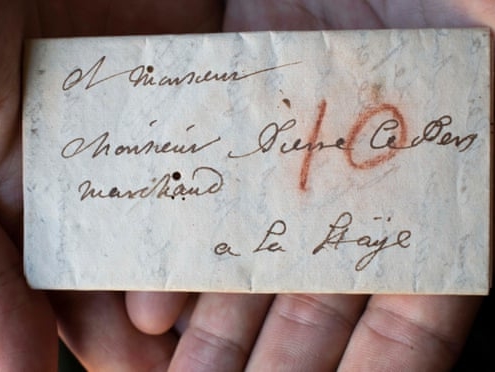 A Monsieur
Monsieur Pierre Le Pers
marchand
a La Haÿe
10